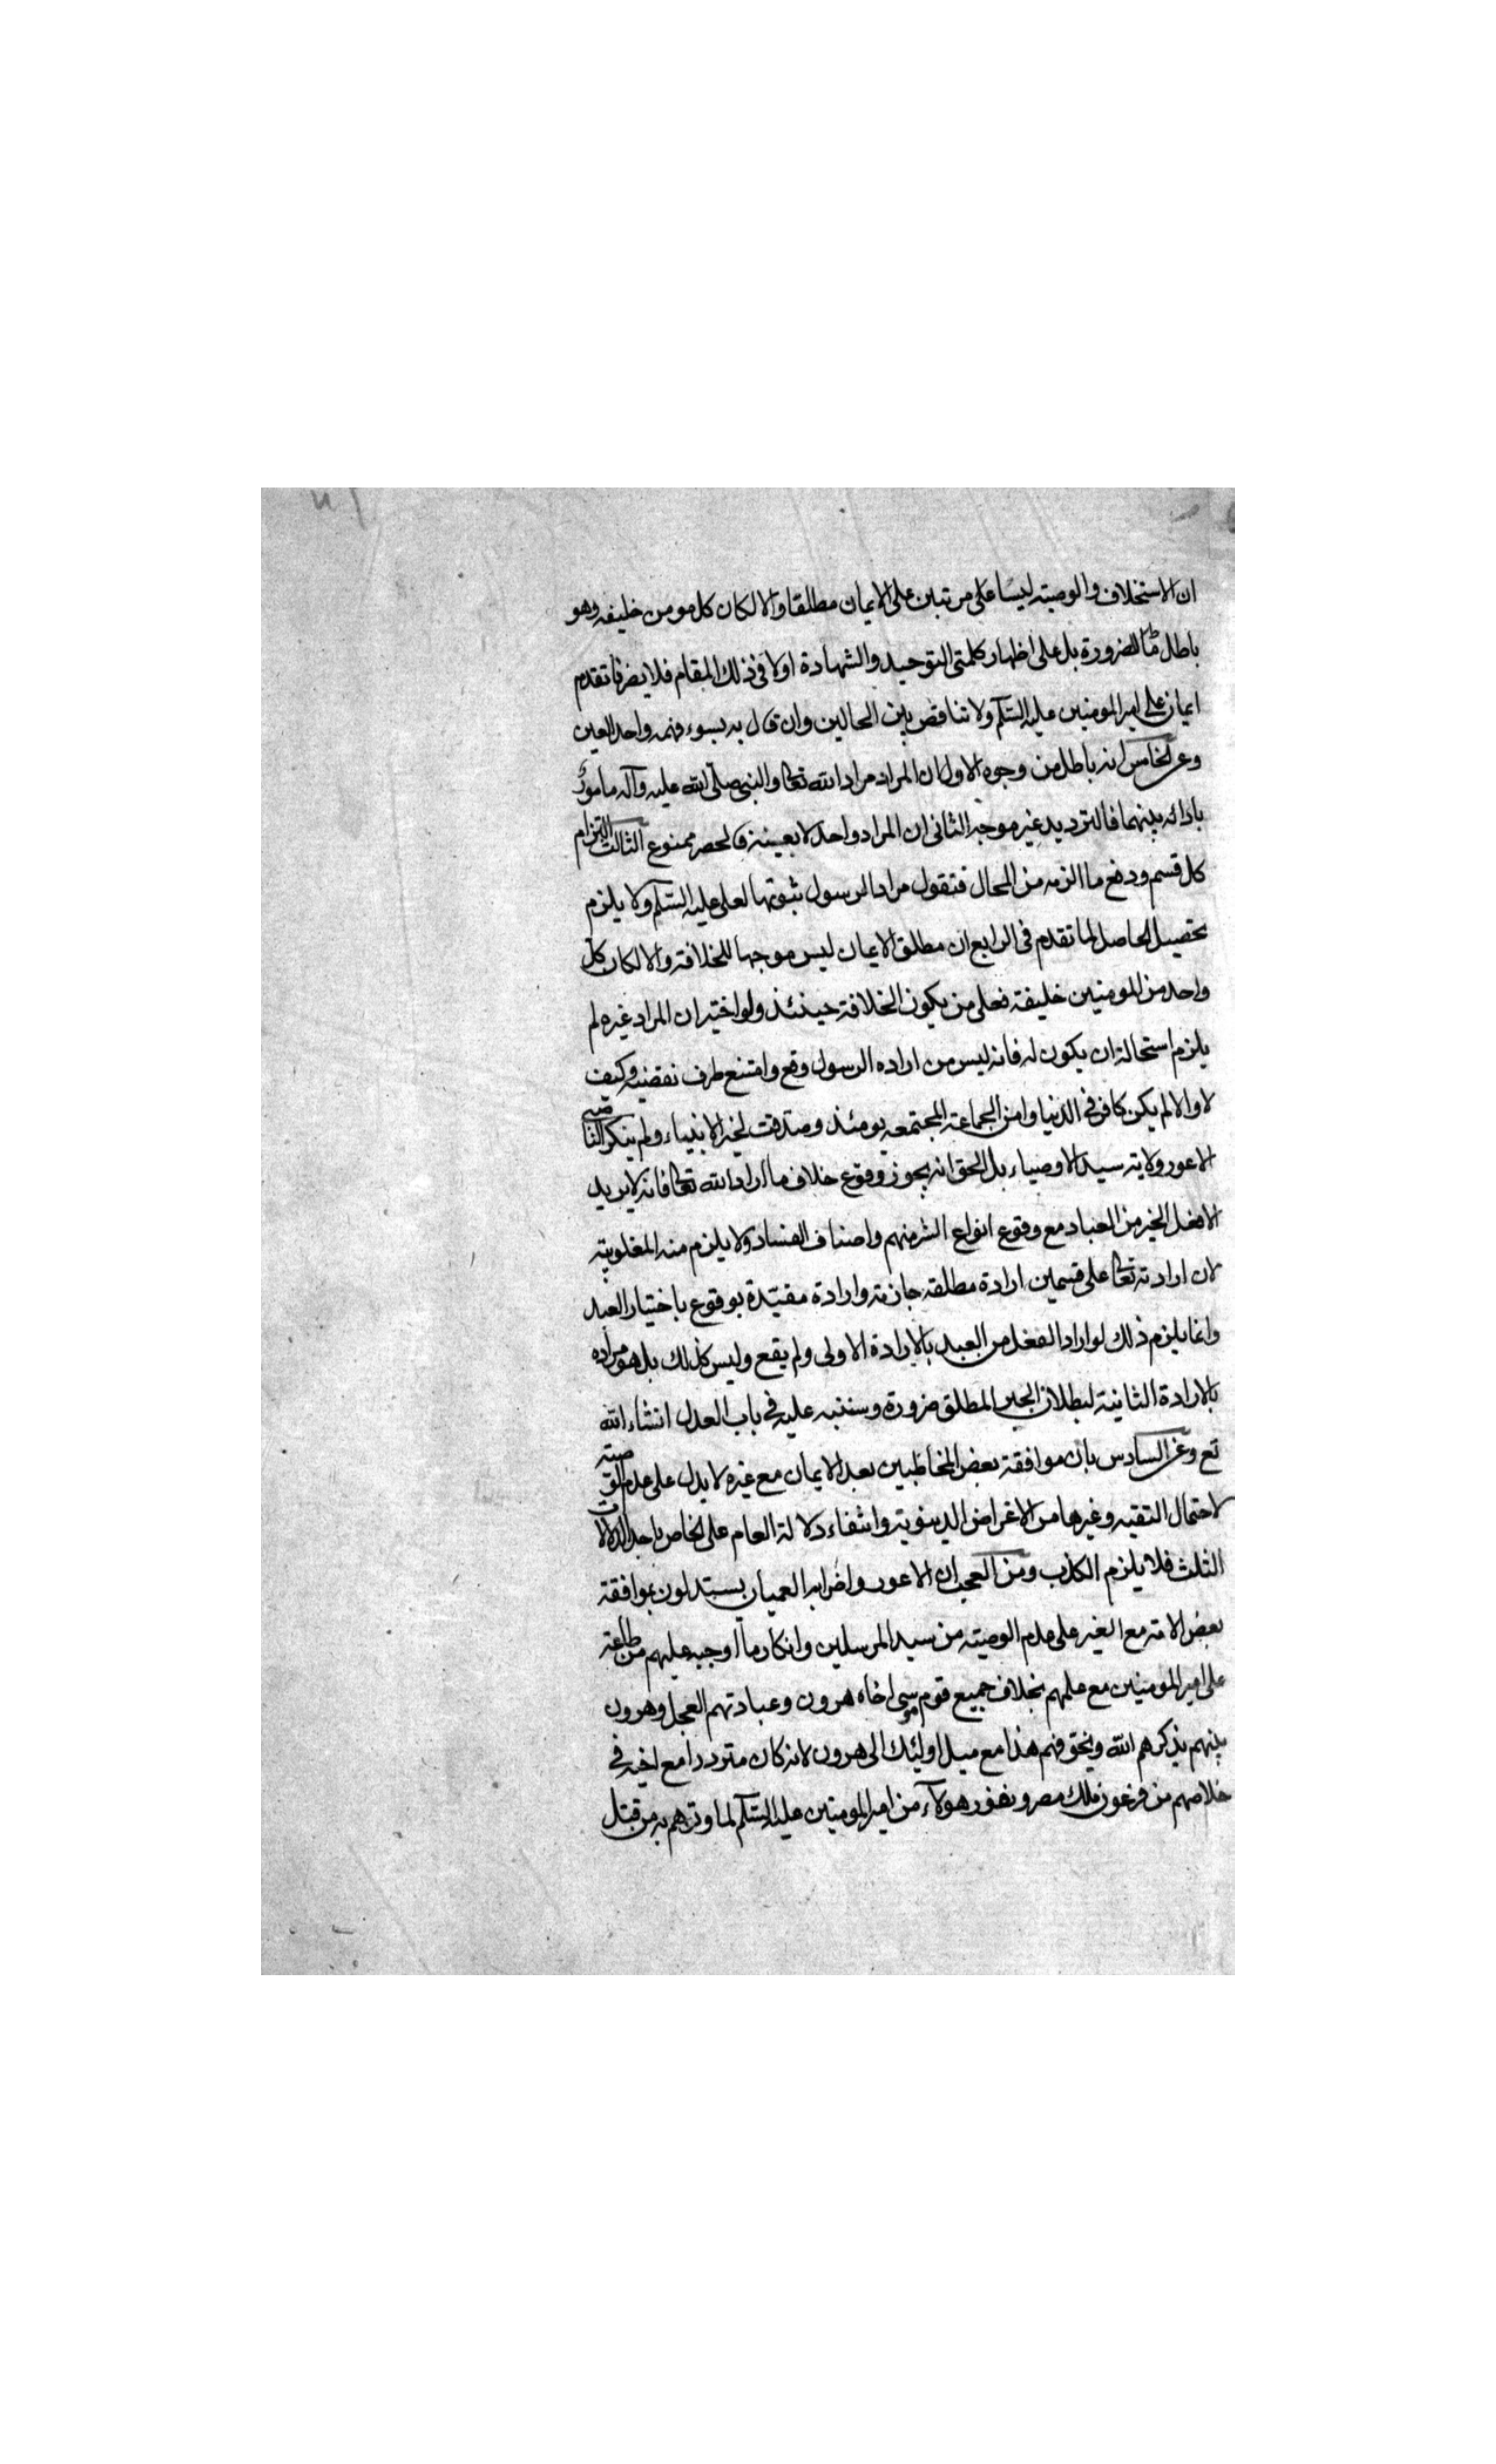 ان الاستخلاف والوصيته ليسا على مرتبين على الايمان مطلقا والا لكان كل مومن خليفه وهو
باطل بالضرورة بل على اظهار كلمتى التوحيد والشهادة اولا فى ذلك المقام فلا يضرنا تقدم
ايمان على امير المومنين عليه السلم ولا تناقض بين الحالين وان قال به بسوء فهمه واحد العين
وعن الخامس انه باطل من وجوه الاول ان المراد مراد الله تعالى والنبى صلى الله عليه وآله مامور
بادائه بينهما فالترديد غير موجه الثانى ان المراد واحد لا بعينه فالحصر ممنوع الثالث التزام
كل قسم ودفع ما الزمه من المحال فتقول مراد الرسول ثبوتها لعلى عليه السلم ولا يلزم
تحصيل الحاصل لما تقدم فى الرابع ان مطلق الايمان ليس موجبا للخلافة والا لكان كل
واحد من المومنين خليفة فعلى من يكون الخلافة حينئذ ولو اختير ان المراد غيره لم
يلزم استحالة ان يكون له فانه ليس من اراده الرسول وقع وامتنع طرف نقضيه وكيف
لا والا لم يكن كافر فى الدنيا وامن الجماعة المجتمعه يومئذ وصدقت لخير الانبياء ولم ينكر
الاعور ولاية سيد الاوصياء بل الحق انه يجوز وقوع خلاف ما اراد الله تعالى فانه لا يريد
الا فعل الخير من العباد مع وقوع انواع الشر منهم واصناف الفساد ولا يلزم منه المغلوبية
لان ارادته تعالى على قسمين ارادة مطلقه جازمة وارادة مقيدة بوقوع باختيار العبد
وانما يلزم ذلك لو اراد الفعل من العبد بالارادة الاولى ولم يقع وليس كذلك بل هو مراده
بالارادة الثانية لبطلان الجبر المطلق ضرورة وسننبه عليه فى باب العدل انشاء الله
تع وعن السادس بان موافقة بعض المخاطبين بعد الايمان مع غيره لا يدل على عدم الوصية
لاحتمال التقيه وغيرها من الاغراض الدينوية وانتفاء دلالة العام على الخاص باحد الدلالات
الثلث فلا يلزم الكذب ومن العجب ان الاعور واضرابه العميان يستدلون بموافقة
بعض الامة مع الغير على عدم الوصيته من سيد المرسلين وانكار ما اوجبه عليهم من طاعة
على امير المومنين مع علمهم بخلاف جميع قوم موسى اخاه هرون وعبادتهم العجل وهرون
بينهم يذكرهم الله ويخوفهم هذا مع ميل اولئك الى هرون لانه كان مترددا مع اخيه فى
خلاصهم من فرعون ملك مصر ونفور هولاء من امير المومنين عليه السلم لما وترهم به من قتل